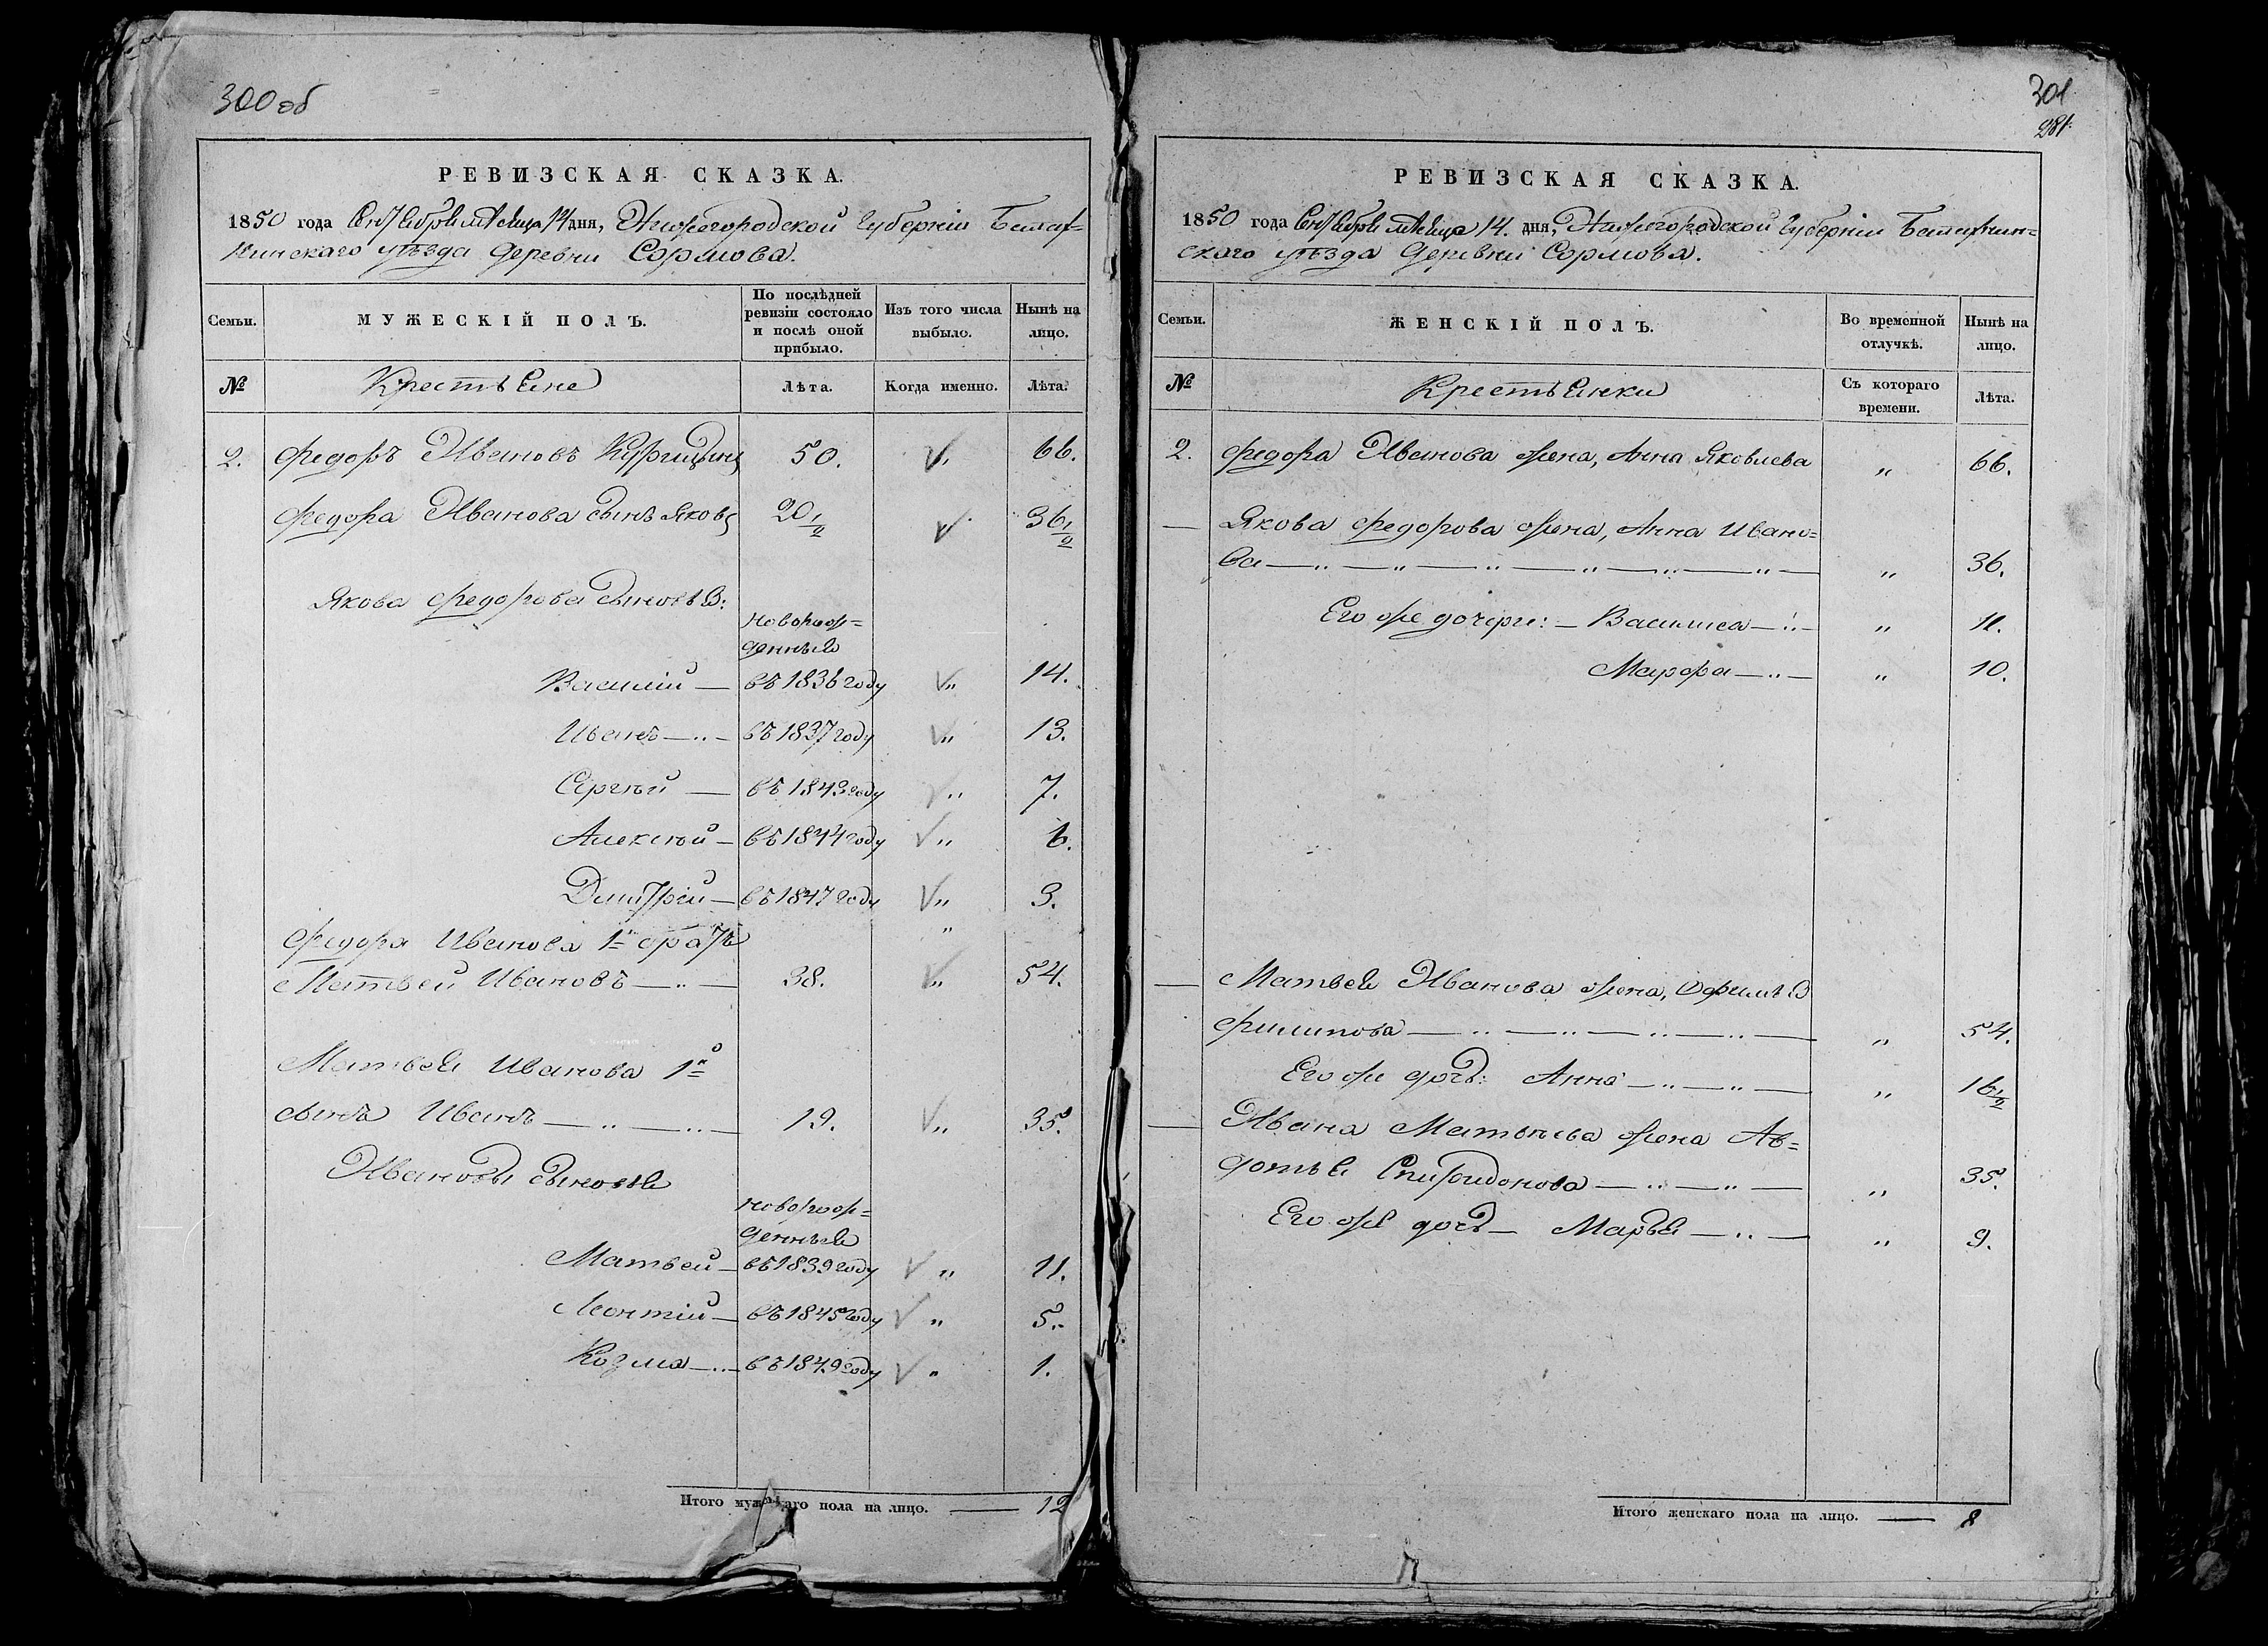 300 об
РЕВИЗСКАЯ СКАЗКА.
1850 года Сентября мѣсяца 14 дня, Нижегородской Губерніи Балах=
нинскаго уѣзда деревни Сормова.
Семьи.
МУЖЕСКІЙ ПОЛЪ.
По послѣдней ревизіи состояло и послѣ оной прибыло.
Изъ того числа выбыло.
Нынѣ на лицо.
№
Крестьяне
Лѣта.
Когда именно.
Лѣта.
2. Федоръ Ивановъ 50. " 66.
Федора Иванова сынъ Яковъ 20 1/2 36 1/2
Якова Федорова сыновья:
новорож=
денныя
Василій — въ 1836 году " 14.
Иванъ — " — въ 1837 году " 13.
Сергѣй — въ 1843 году " 7.
Алексѣй — въ 1844 году " 6.
Дмитрій — въ 1847 году " 3.
Федора Иванова 1й братъ "
Матвей Ивановъ — " — 38. " 54.
Матвея Иванова 1й
сынъ Иванъ — " — " — 19. " 35.
Ивановы сыновья
новорож=
денныя
Матвей — въ 1839 году " 11.
Леонтій — въ 1845 году " 5.
Козма — " — въ 1849 году " 1.
Итого мужескаго пола на лицо. — 12
301
281.
РЕВИЗСКАЯ СКАЗКА.
1850 года Сентября мѣсяца 14. дня, Нижегородской Губерніи Балахнин=
скаго уѣзда деревни Сормова.
Семьи.
ЖЕНСКІЙ ПОЛЪ.
Во временной отлучкѣ.
Нынѣ на лицо.
№
Крестьянки
Съ котораго времени.
Лѣта.
2. Федора Иванова жена, Анна Яковлева " 66.
— Якова Федорова жена, Анна Ивано=
ва — " — " — " — " — " — " — " 36.
Его же дочери: — Василиса — " — " 11.
Марфа — " — " 10.
— Матвея Иванова жена, Офимья
Филипова — " — " — " — " — " 54.
Его же дочь: Анна — " — " — " 16 1/2
— Ивана Матвѣева жена Ав=
дотья Спиридонова — " — " — " 35.
Его же дочь — Марья — " — " 9.
Итого женскаго пола на лицо. — 8